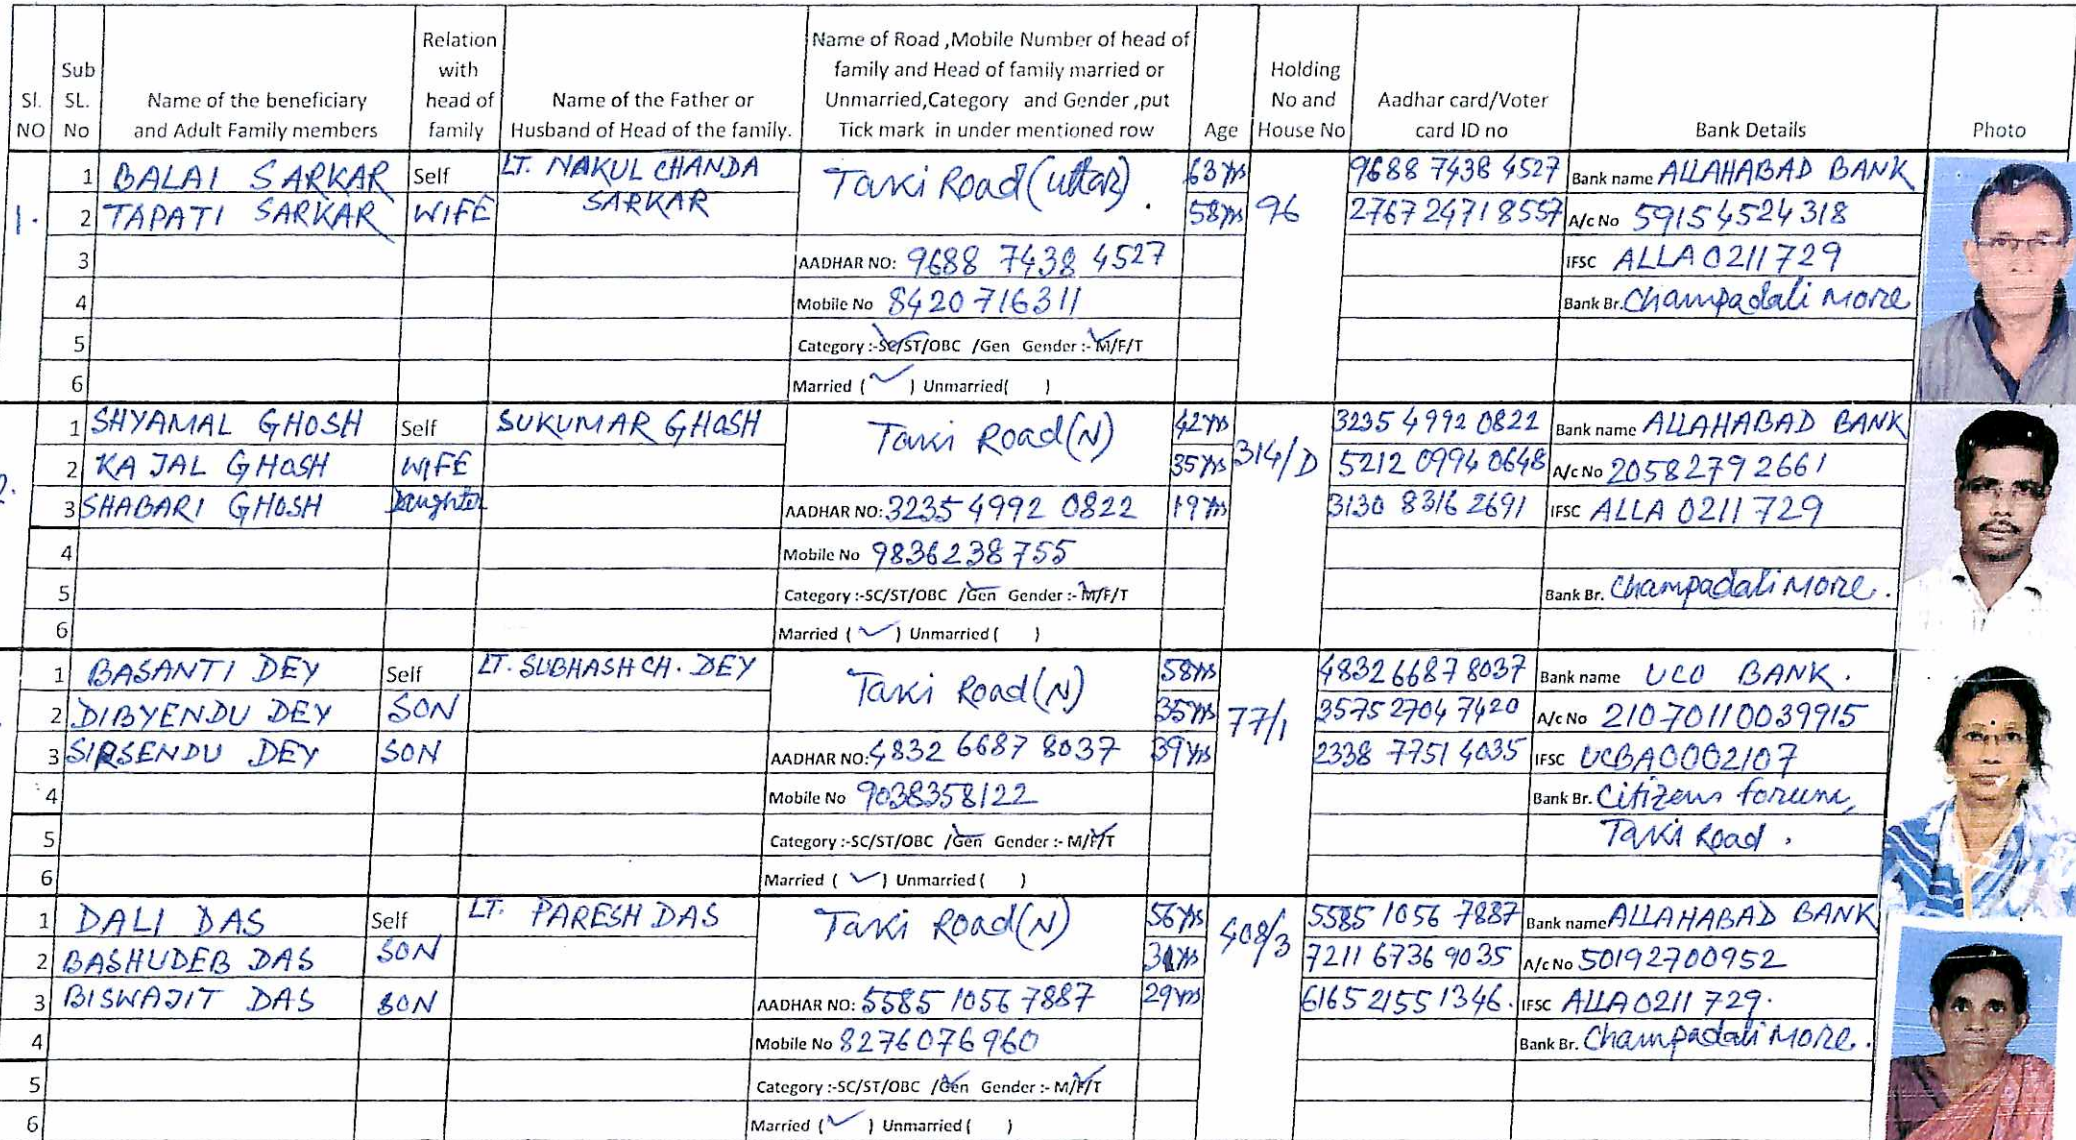 Sl. NO | Sub SL. No | Name of the beneficiary and Adult Family members | Relation with head of family | Name of the Father or Husband of Head of the family. | Name of Road ,Mobile Number of head of family and Head of family married or Unmarried,Category and Gender ,put Tick mark in under mentioned row | Age | Holding No and House No | Aadhar card/Voter card ID no | Bank Details | Photo
1. 1 BALAI SARKAR Self LT. NAKUL CHANDA SARKAR Taki Road (Uttar). 63 yrs 96 9688 7438 4527 Bank name ALLAHABAD BANK
2 TAPATI SARKAR WIFE 58 yrs 2767 2471 8557 A/c No 59154524318
3 AADHAR NO: 9688 7438 4527 IFSC ALLA0211729
4 Mobile No 8420716311 Bank Br. Champadali More
5 Category :-SC/ST/OBC /Gen Gender :- M/F/T
6 Married ( ) Unmarried( )
2. 1 SHYAMAL GHOSH Self SUKUMAR GHOSH Taki Road (N) 42 yrs 314/D 3235 4992 0822 Bank name ALLAHABAD BANK
2 KAJAL GHOSH WIFE 35 yrs 5212 0994 0648 A/c No 20582792661
3 SHABARI GHOSH Daughter AADHAR NO: 3235 4992 0822 19 yrs 3130 8316 2691 IFSC ALLA 0211729
4 Mobile No 9836238755
5 Category :-SC/ST/OBC /Gen Gender :- M/F/T Bank Br. Champadali More.
6 Married ( ) Unmarried ( )
1 BASANTI DEY Self LT. SUBHASH CH. DEY Taki Road (N) 58 yrs 77/1 4832 6687 8037 Bank name UCO BANK.
2 DIBYENDU DEY SON 35 yrs 3575 2704 7420 A/c No 21070110039915
3 SIRSENDU DEY SON AADHAR NO: 4832 6687 8037 39 yrs 2338 7751 4035 IFSC UCBA0002107
4 Mobile No 9038358122 Bank Br. Citizens forum,
5 Category :-SC/ST/OBC /Gen Gender :- M/F/T Taki Road.
6 Married ( ) Unmarried ( )
1 DALI DAS Self LT. PARESH DAS Taki Road (N) 56 yrs 408/3 5585 1056 7887 Bank name ALLAHABAD BANK
2 BASHUDEB DAS SON yrs 7211 6736 9035 A/c No 50192700952
3 BISWAJIT DAS SON AADHAR NO: 5585 1056 7887 29 yrs 6165 2155 1346. IFSC ALLA0211729.
4 Mobile No 8276076960 Bank Br. Champadali More.
5 Category :-SC/ST/OBC /Gen Gender :- M/F/T
6 Married ( ) Unmarried ( )